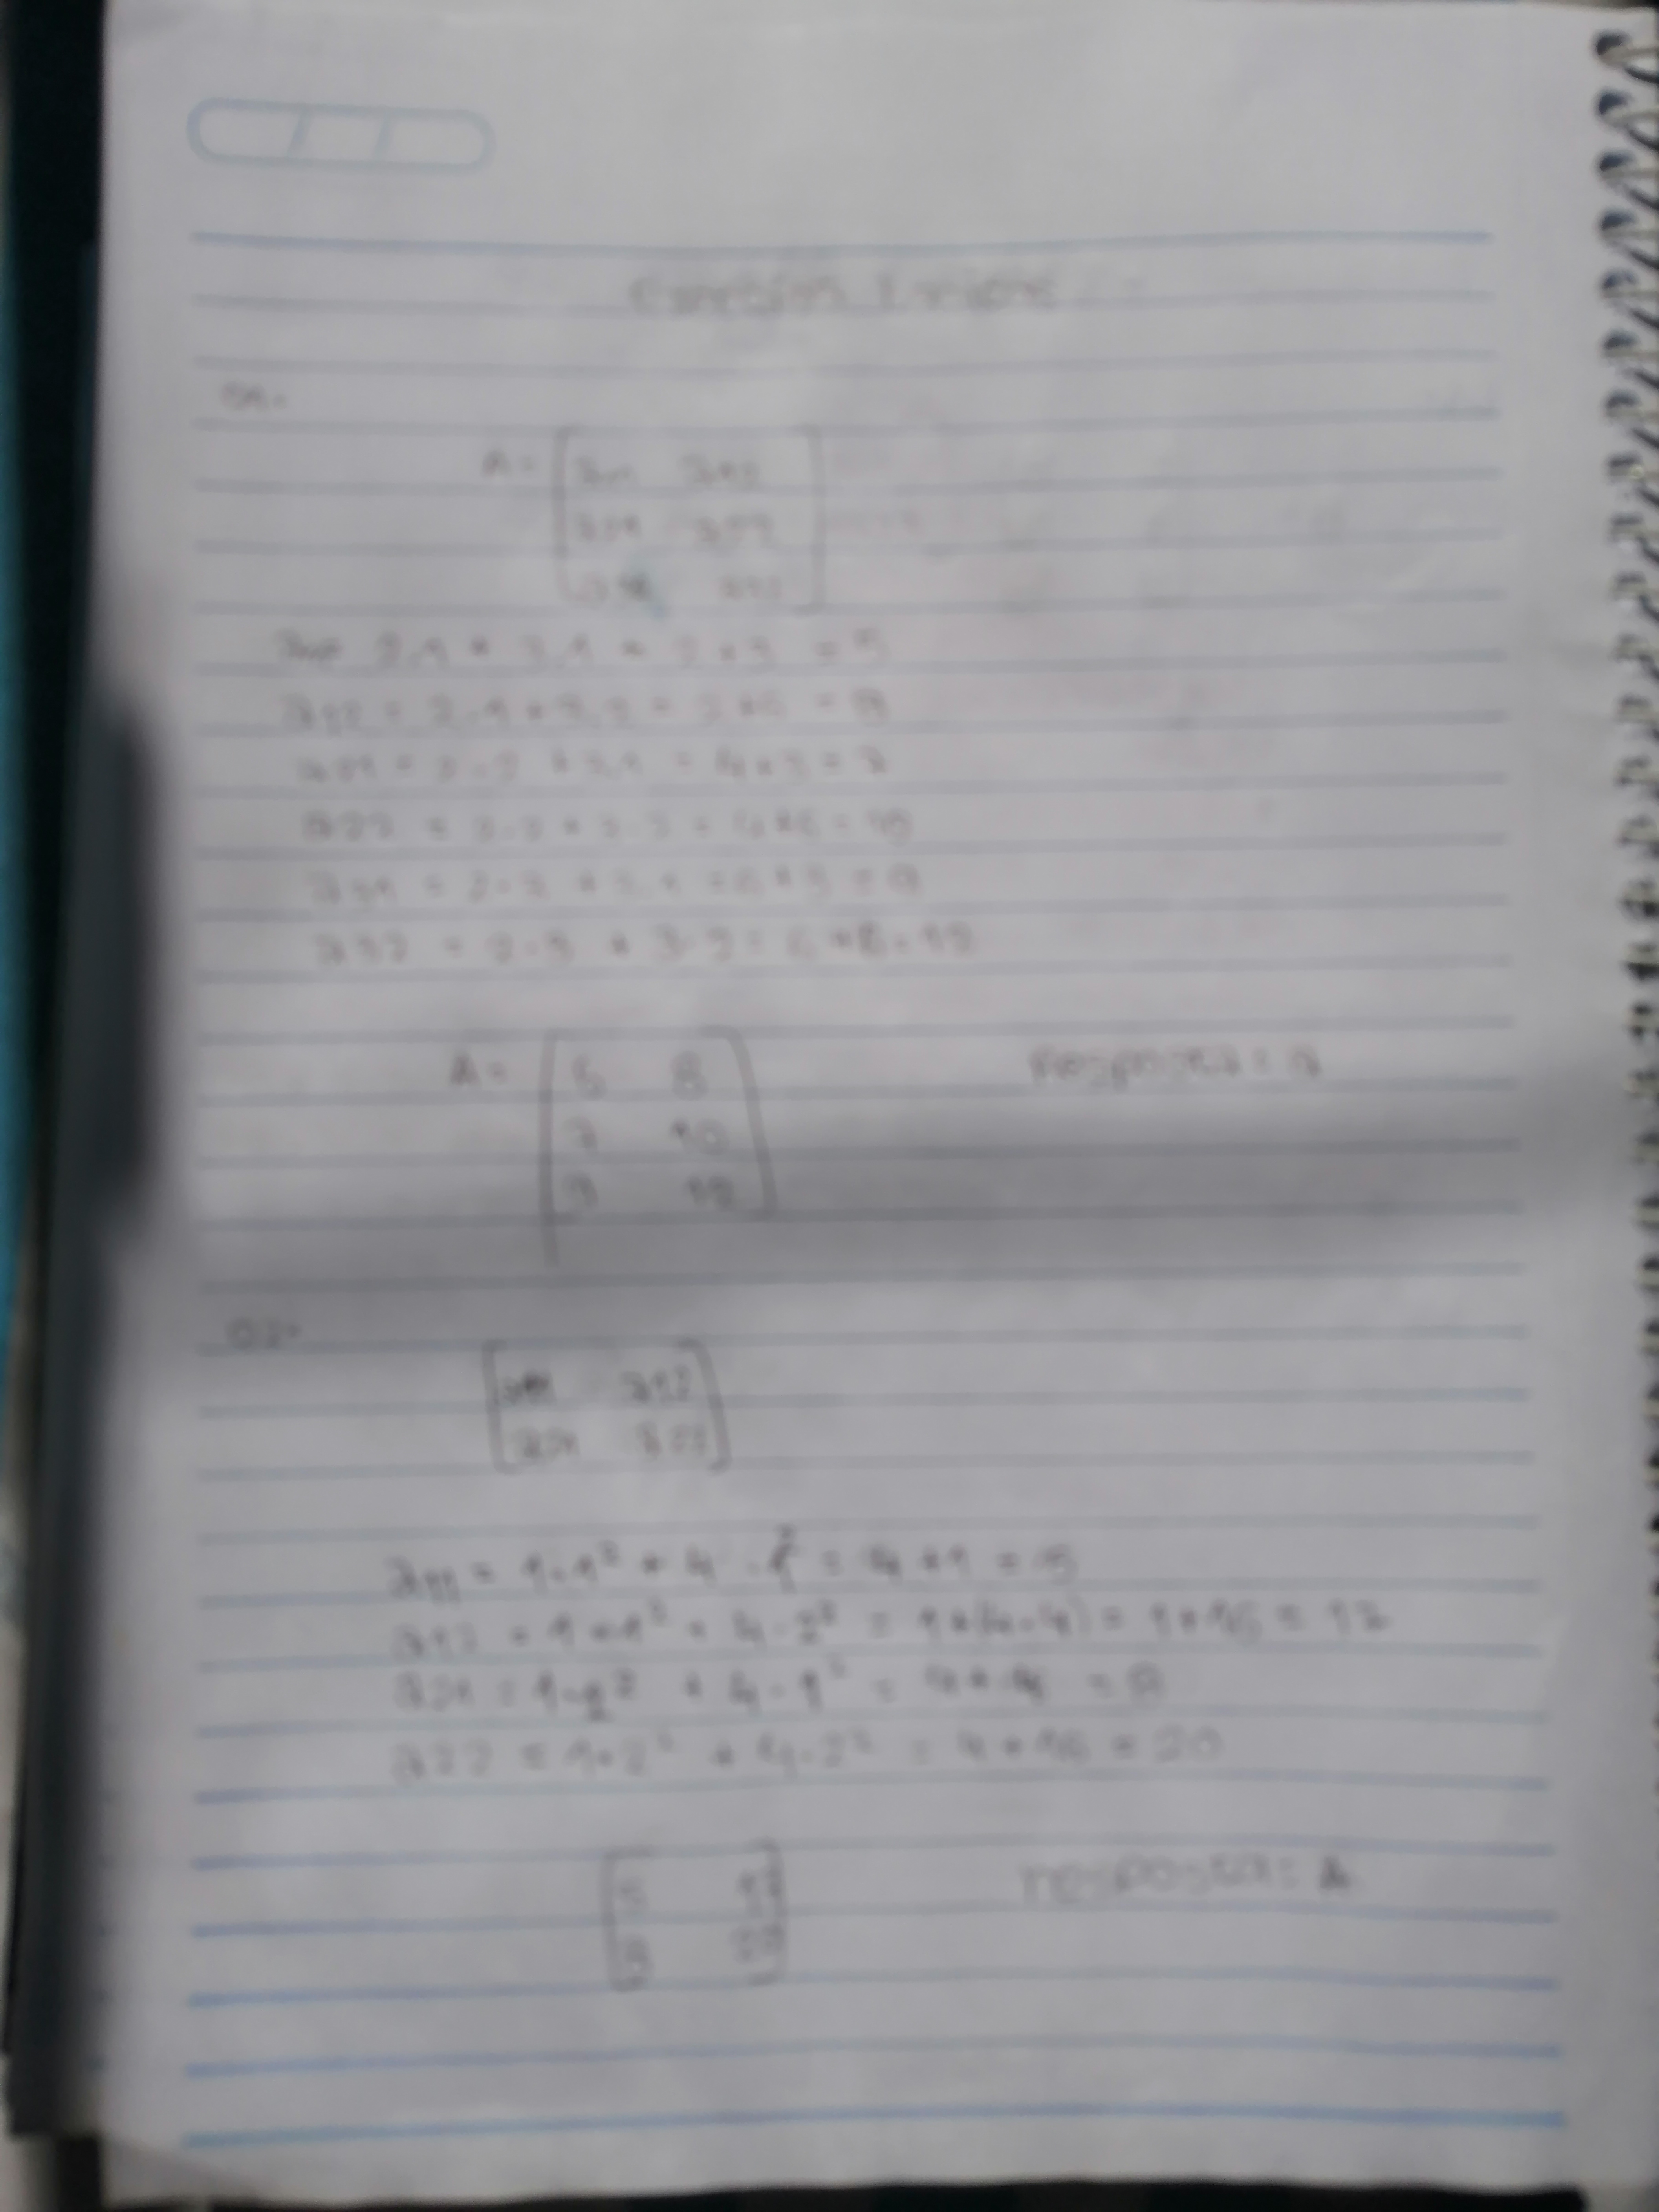 01-
A = [a11 a12
a21 a22
a31 a32]
a11= 2.1 + 3.1 = 2+3 = 5
a12 = 2.1+3.2 = 2+6 = 8
a21 = 2.2 +3.1 = 4+3 = 7
a22 = 2.2 + 3.2 = 4+6 = 10
a31 = 2.3 + 3.1 = 6+3 = 9
a32 = 2.3 + 3.2 = 6 +6 = 12
A = [5 8
7 10
9 12]
resposta = a
02-
[a11 a12
a21 a22]
a11 = 1.1² + 4 . 1² = 4+1 = 5
a12 = 1.1² + 4.2² = 1+(4.4) = 1+16 = 17
a21 = 1.2² + 4.1² = 4+4 = 8
a22 = 1.2² + 4.2² = 4+16 = 20
[5 17
8 20]
resposta = A